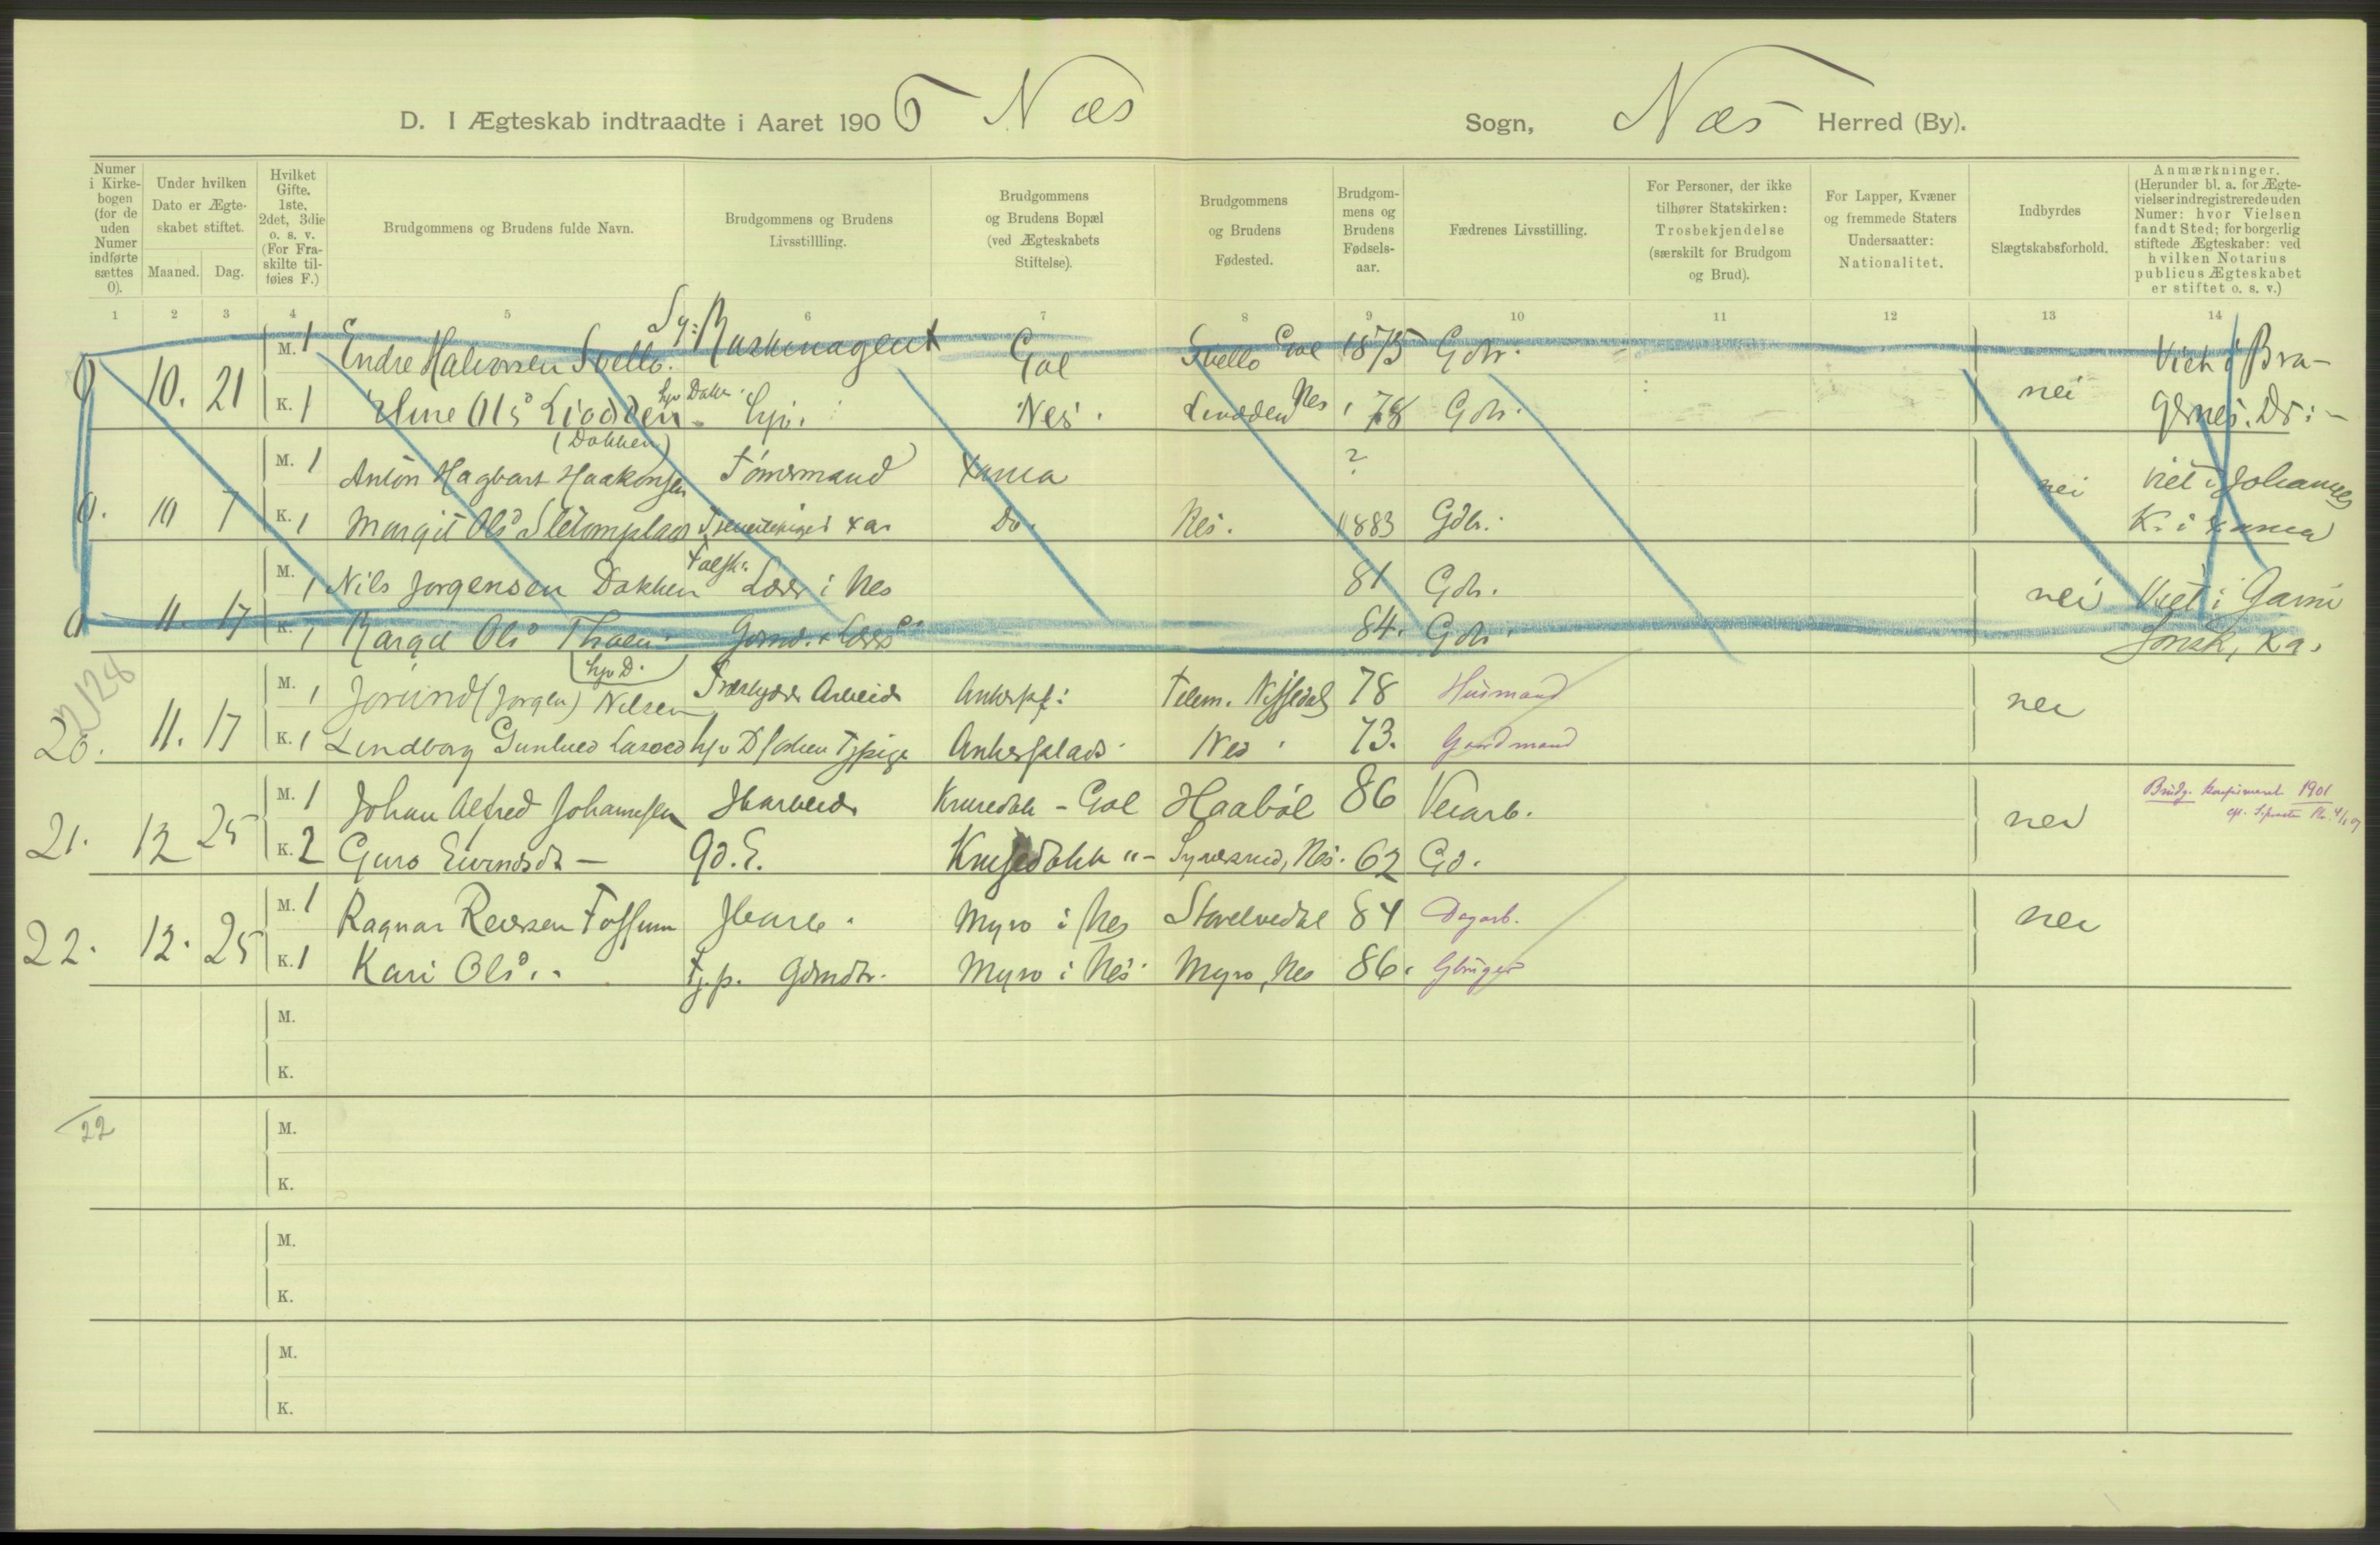 D. I Ægteskab indtraadte i Aaret 1906 Næs Sogn, Næs Herred (By).
Numer i Kirkebogen (for de uden Numer indførte sættes 0).
Under hvilken Dato er Ægteskabet stiftet.
Maaned. Dag.
Hvilket Gifte. 1ste, 2det, 3die o. s. v. (For Fraskilte tilføies F.)
Brudgommens og Brudens fulde Navn.
Brudgommens og Brudens Livsstillling.
Brudgommens og Brudens Bopæl (ved Ægteskabets Stiftelse).
Brudgommens og Brudens Fødested.
Brudgommens og Brudens Fødselsaar.
Fædrenes Livsstilling.
For Personer, der ikke tilhører Statskirken: Trosbekjendelse (særskilt for Brudgom og Brud).
For Lapper, Kvæner og fremmede Staters Undersaatter: Nationalitet.
Indbyrdes Slægtskabsforhold.
Anmærkninger. (Herunder bl. a. for Ægtevielser indregistrerede uden Numer: hvor Vielsen fandt Sted; for borgerlig stiftede Ægteskaber: ved hvilken Notarius publicus Ægteskabet er stiftet o. s. v.)
1 2 3 4 5 6 7 8 9 10 11 12 13 14
M. 1 Endre Halvorsen Svello. Maskinagent Gol Svello Gol 1875 Gdr. Viet i Bra-
0 10. 21 K. 1 Olsd Liodden Hjv. Nes. Nes 78 Gdr. nei gernes. Dr:-
(Dokken)
M. 1 Anton Hagbart Haakonsen Tømermand Xania ? nei Viet i Johannes
0. 10 7 K. 1 Margit Olsd Xa. Do. Nes. 1883 Gdbr. K. i Xania
M. 1 Nils Jørgensen Dokken Lær i Nes 81 Gdr. nei Viet i Garni
0 11. 17 K. 1 Margit Olsd Gdmd. 84. Gdr. Xa.
hjv D.
M. 1 Jorund (Jørgen) Nilsen Arbeid Ankerpl: Telem. Nissedal 78 Husmand nei
20. 11. 17 K. 1 Lindborg Gunhild Ankerplads Nes 73. Gaardmand
M. 1 Johan Alfred Johannesen Krusedokk - Gol Haabøl 86 Veiarb. nei Brudg. konfirmeret 1901
21. 12 25 K. 2 Guro Eivindsdt - Gd. E. Krusedokk "- Nes. 62 Gd.
M. 1 Ragnar Reiersen Fossum Jbarb. Myro i Nes 84 Dagarb. nei
22. 12. 25 K. 1 Kari Olsd.. Tj.p. Gdmdtr. Myro i Nes. Myro, Nes 86. Gbruger
M.
K.
22
M.
K.
M.
K.
M.
K.